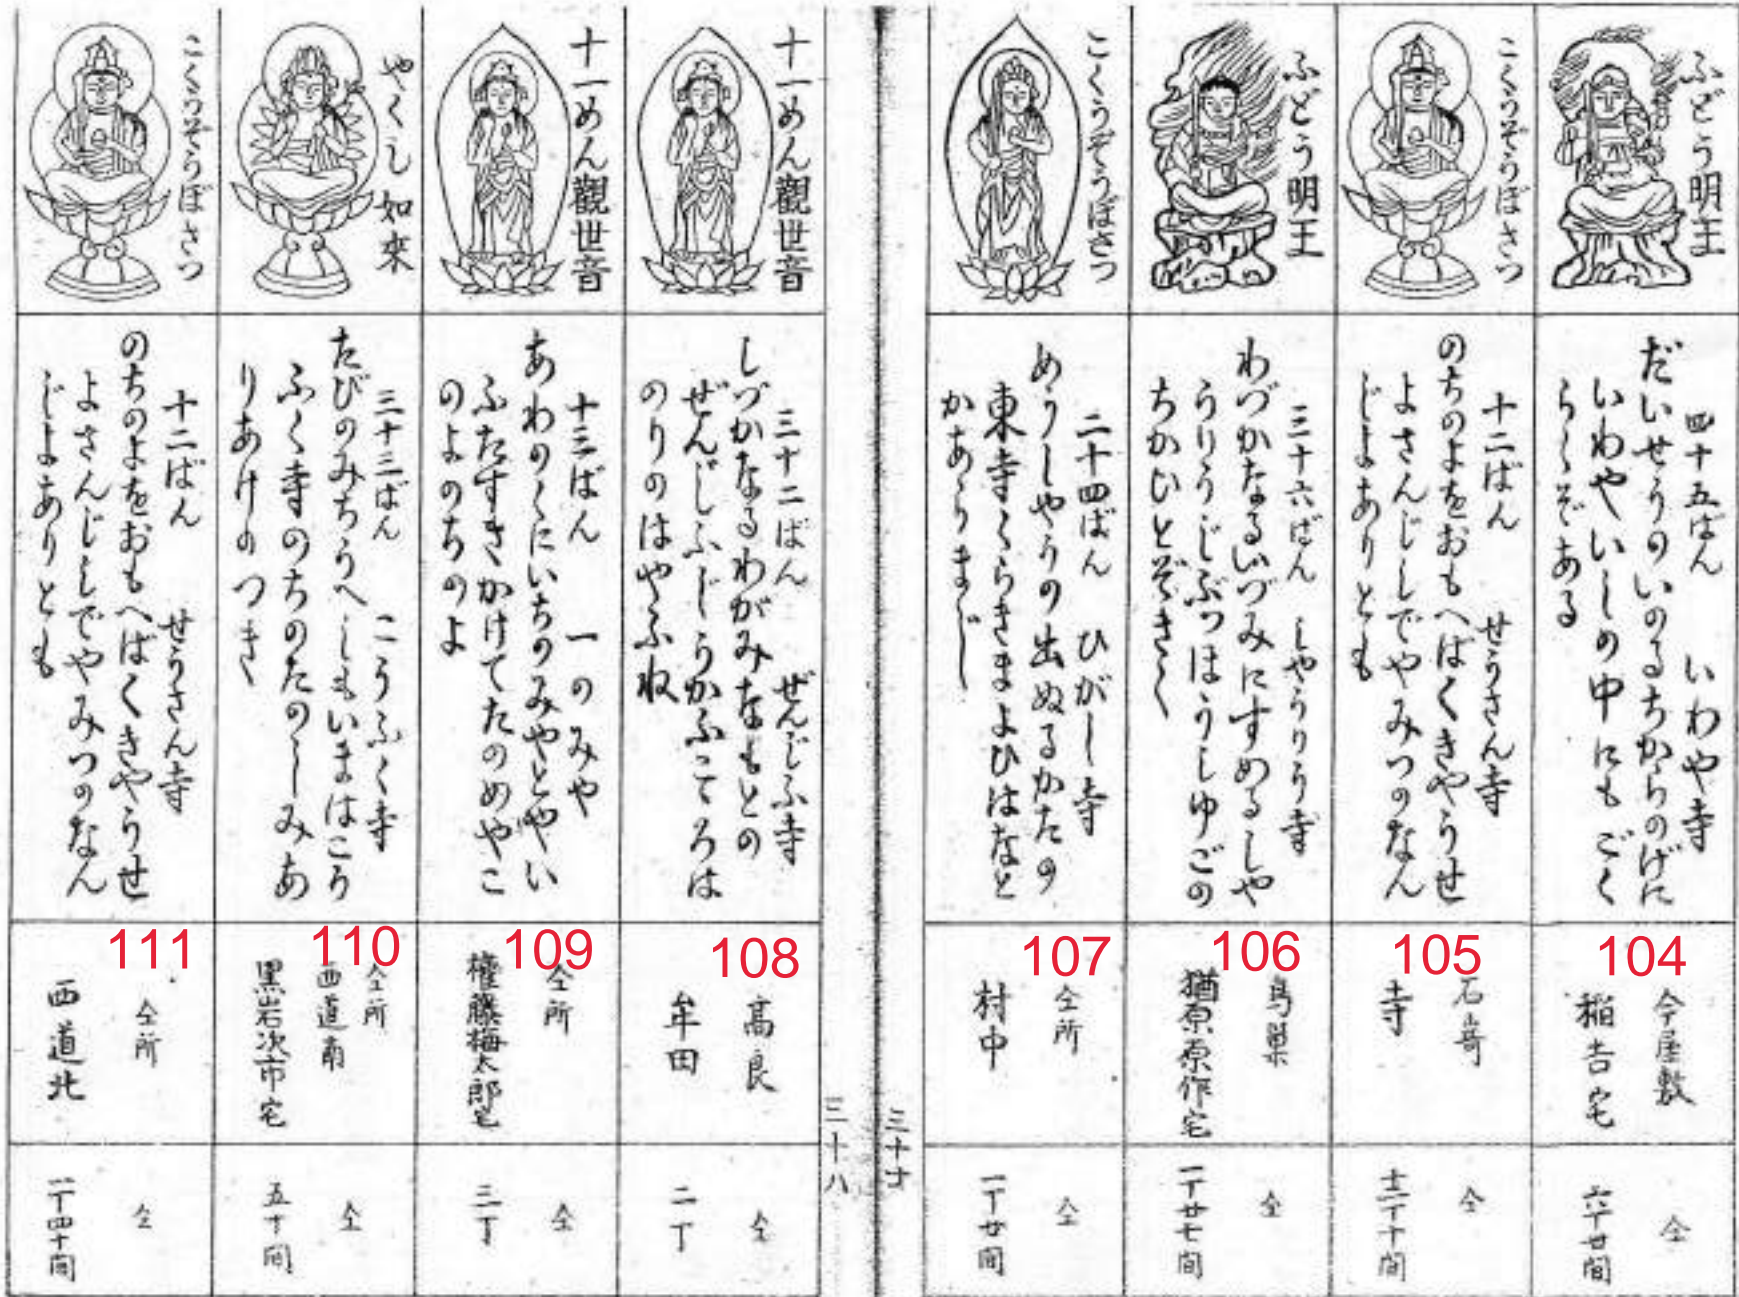 ふどう明王
四十五ばん　いわや寺
だいせうのいのるちからのげに
いわやいしの中にもごく
らくぞある
104
今屋敷
稲吉宅
仝
六丁廿間
こくうぞうぼさつ
十二ばん　せうさん寺
のちのよをおもへばくきやうせ
よさんじしでやみつのなん
じよありとも
105
石崎
寺
仝
十二丁十間
ふどう明王
三十六ばん　しやうりう寺
わづかなるいづみにすめるしや
うりうじぶつほうしゆごの
ちかひとぞきく
106
鳥巣
猶原原作宅
仝
一丁廿七間
こくうぞうぼさつ
二十四ばん　ひがし寺
めうしやうの出ぬるかたの
東寺くらきまよひはなと
かあらまじ
107
仝所
村中
仝
一丁廿間
三十七
三十八
十一めん觀世音
三十二ばん　ぜんじふ寺
しづかなるわがみなもとの
ぜんじふじうかふこころは
のりのはやふね
108
高良
牟田
仝
二丁
十一めん觀世音
十三ばん　一のみや
あわのくにいちのみやとやい
ふたすきかけてたのめやこ
のよのちのよ
109
仝所
権藤梅太郎宅
仝
三丁
やくし如來
三十三ばん　こうふく寺
たびのみちうへしもいまはこう
ふく寺のちのたのしみあ
りあけのつきく
110
仝所
西道南
黒岩次市宅
仝
五十間
こくうぞうぼさつ
十二ばん　せうさん寺
のちのよをおもへばくきやうせ
よさんじしでやみつのなん
じよありとも
111
仝所
西道北
仝
一丁四十間